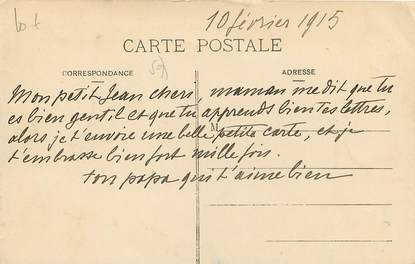 Lot
10 février 1915
CARTE POSTALE
CORRESPONDANCE
ADRESSE
Mon petit Jean cheri, maman me dit que tu
es bien gentil et que tu apprends bien tes lettres,
alors je t'envoie une belle petite carte, et je
M
t'embrasse bien fort mille fois.
ton papa qui t'aime bien